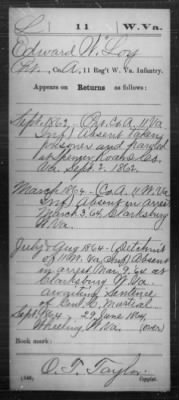 L | 11 | W. Va.
Edward W. Loy
Pvt., Co. A, 11 Reg't W. Va. Infantry.
Appears on Returns as follows:
Sept. 1862, Pvt. Co. A, 11 W. Va
Inf. Absent taken
prisoner and paroled
at Spencer Roane Co.
Va. Sept. 2, 1862.
March 1864, Co. A, 11 W. Va
Inf. Absent in arrest
March 3, 64, Clarksburg
W. Va.
July & Aug 1864 (Detchmt
of 11 W. Va. Inf.) Absent
in arrest Mar. 9, 64 at
Clarksburg W. Va.
awaiting Sentence
of Genl. C. Martial
Sept. 1864, 29 June 1864,
Wheeling W. Va. (over)
Book mark:
O. F. Taylor
(546) Copyist.